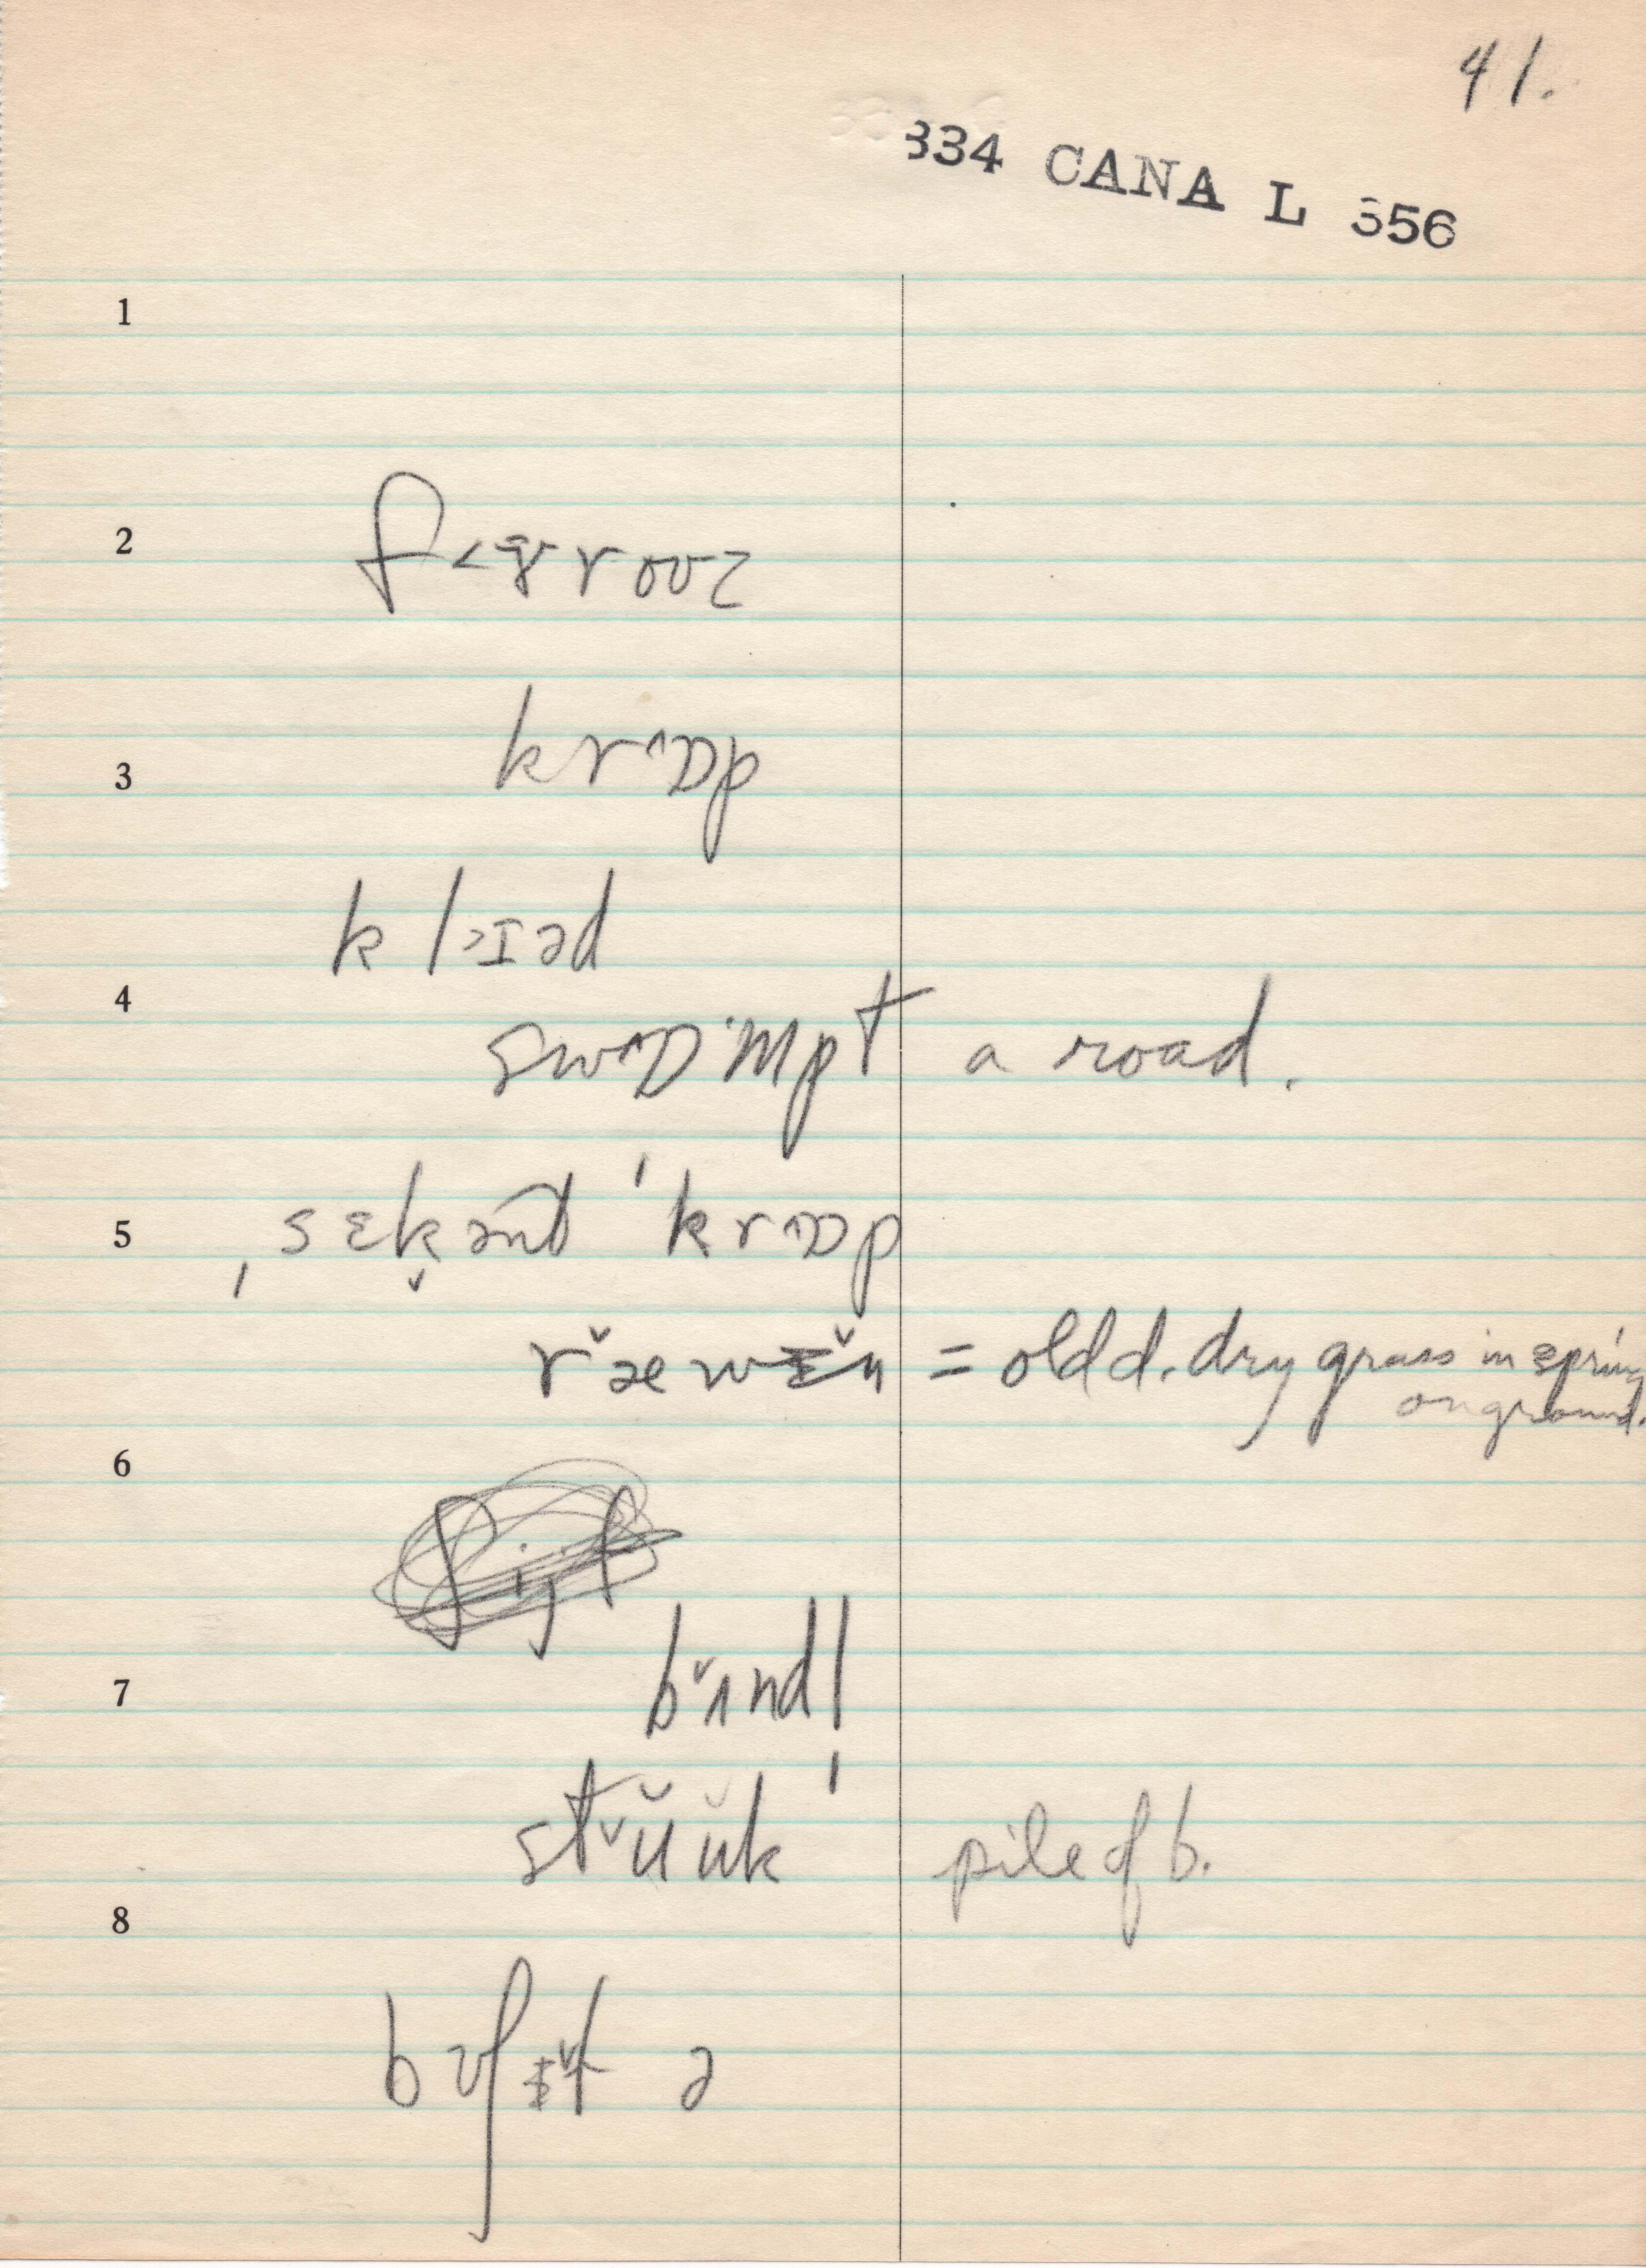 41.
334 CANA L 356
1
2
f˂ɚrouz
3
kr˄ɒp
kl˃ɪəd
4
sw˄ɒ·mpt a road.
5
ˌsɛk̬ənd ˈkr˄ɒp
r˅æwɪ˅n = old d. dry grass in spring
on ground.
6
7
b˅ʌndl
st˅ŭŭk pile of b.
8
bʊʃɪ˅t ə